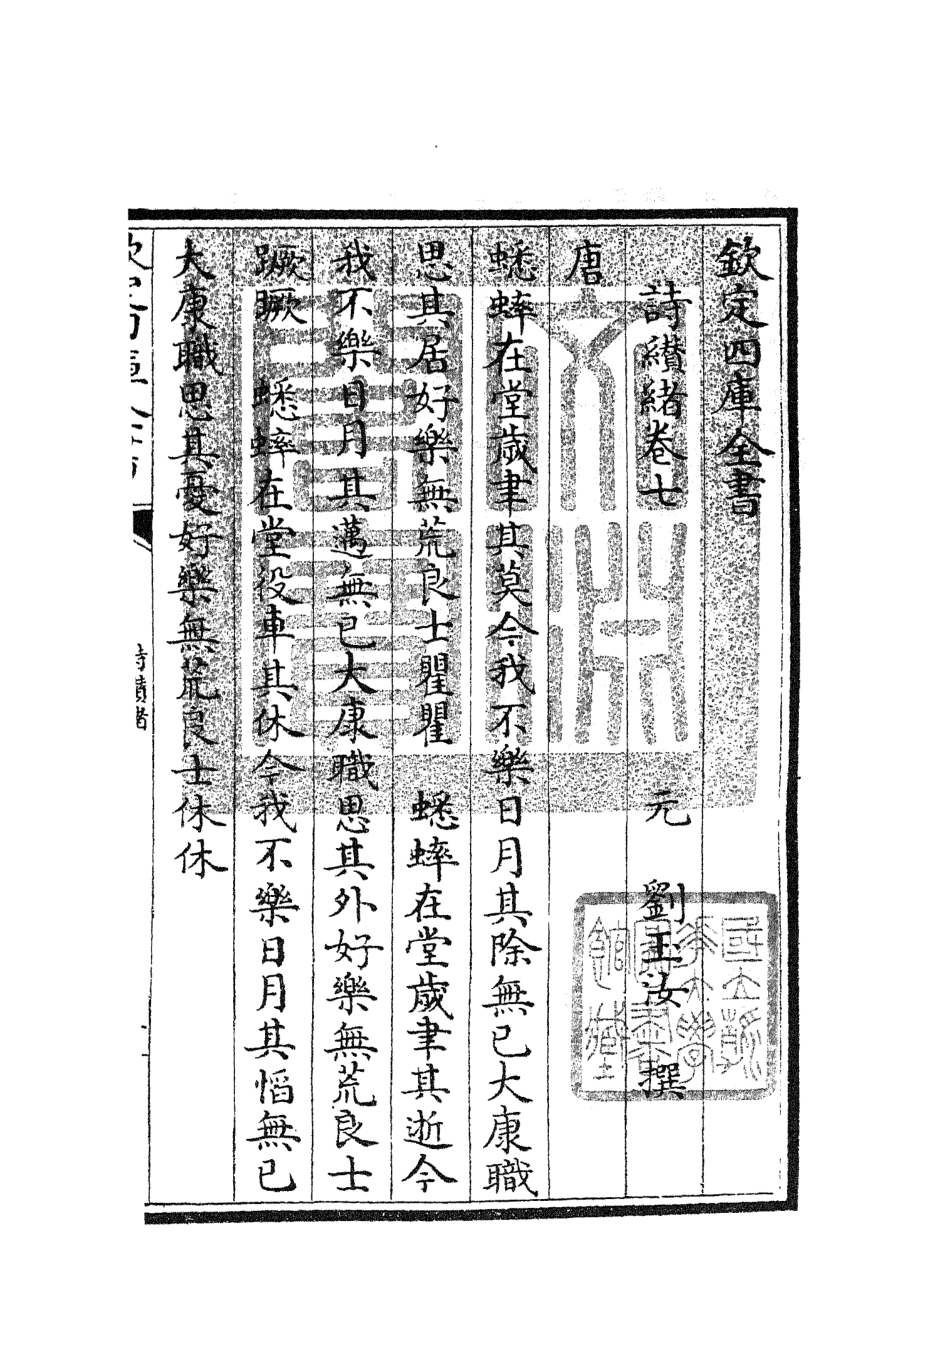 欽定四庫全書
詩纘緒卷七　元　劉玉汝　撰
唐
蟋蟀在堂歲聿其莫今我不樂日月其除無已大康職
思其居好樂無荒良士瞿瞿　蟋蟀在堂歲聿其逝今
我不樂日月其邁無已大康職思其外好樂無荒良士
蹶蹶　蟋蟀在堂役車其休今我不樂日月其慆無已
大康職思其憂好樂無荒良士休休
詩纘緒